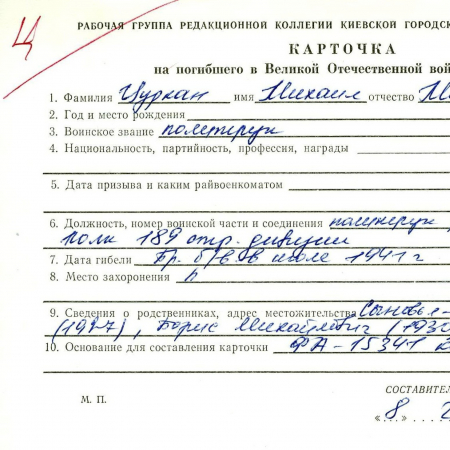 Ц
РАБОЧАЯ ГРУППА РЕДАКЦИОННОЙ КОЛЛЕГИИ КИЕВСКОЙ ГОРОДСК
КАРТОЧКА
на погибшего в Великой Отечественной вой
1. Фамилия Цуркан имя Михаил отчество М
2. Год и место рождения
3. Воинское звание политрук
4. Национальность, партийность, профессия, награды
5. Дата призыва и каким райвоенкоматом
6. Должность, номер воинской части и соединения политрук,
полк 189 стр. дивизии
7. Дата гибели Пр. б/в. в июле 1941 г
8. Место захоронения
9. Сведения о родственниках, адрес местожительства Сыновья-
(1927), Борис Михайлович (1930
10. Основание для составления карточки ФА-15341
СОСТАВИТЕЛ
М. П.
"..." 8